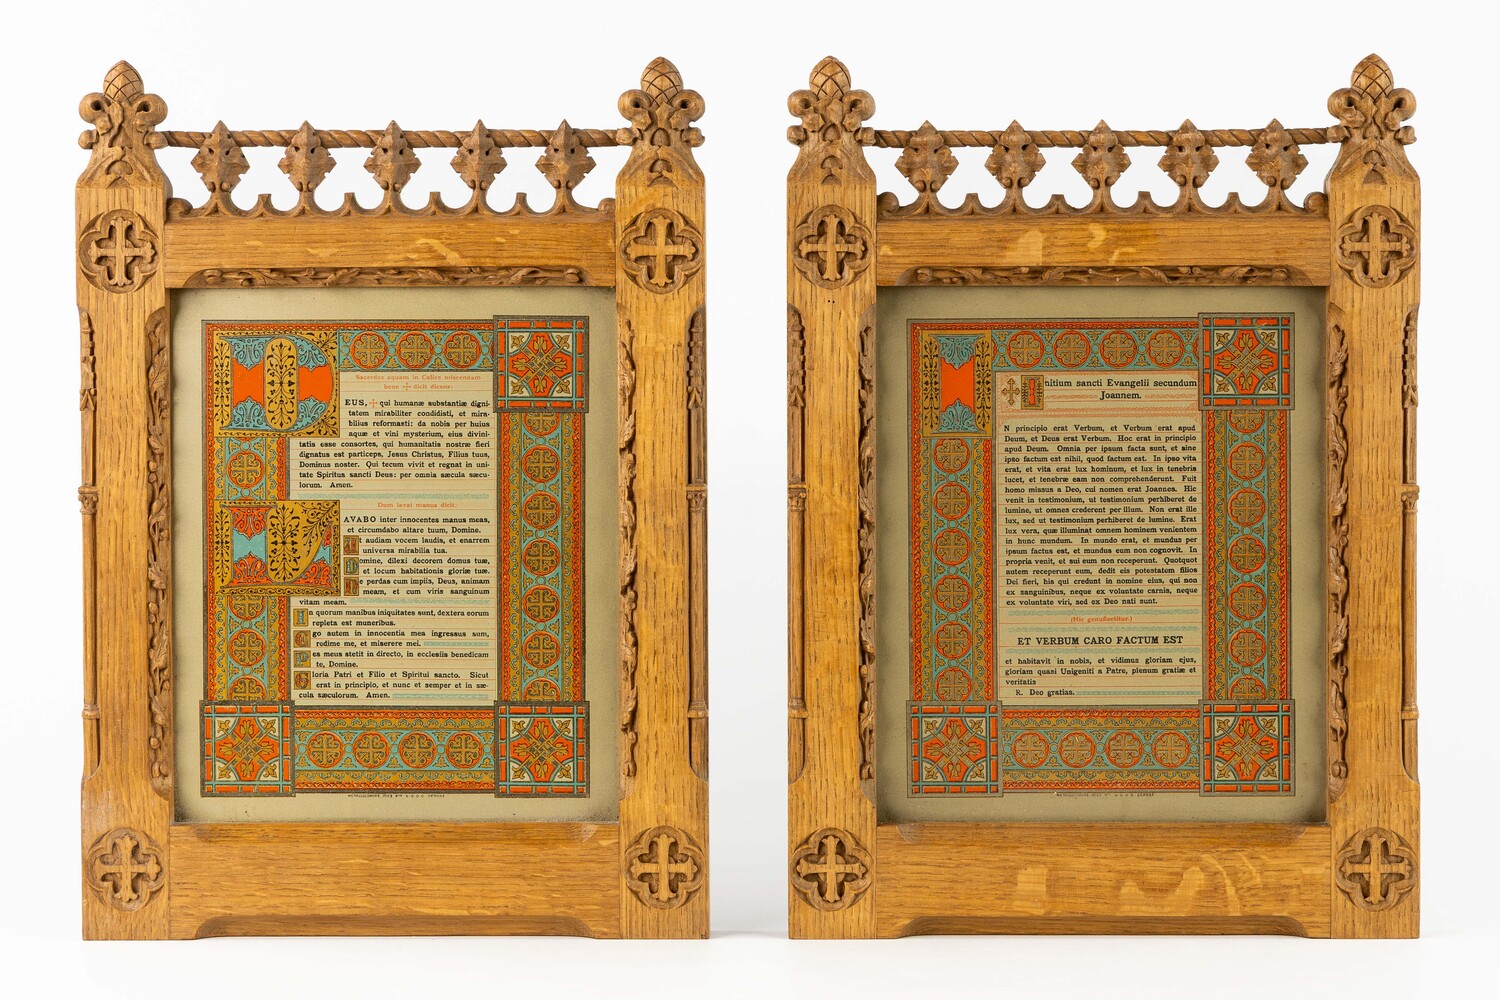 Sacerdos aquam in Calice miscendam
bene ✠ dicit dicens:
DEUS, ✠ qui humanæ substantiæ digni-
tatem mirabiliter condidisti, et mira-
bilius reformasti: da nobis per huius
aquæ et vini mysterium, eius divini-
tatis esse consortes, qui humanitatis nostræ fieri
dignatus est particeps, Jesus Christus, Filius tuus,
Dominus noster. Qui tecum vivit et regnat in uni-
tate Spiritus sancti Deus: per omnia sæcula sæcu-
lorum. Amen.
Dum lavat manus dicit:
LAVABO inter innocentes manus meas,
et circumdabo altare tuum, Domine.
Ut audiam vocem laudis, et enarrem
universa mirabilia tua.
Domine, dilexi decorem domus tuæ,
et locum habitationis gloriæ tuæ.
Ne perdas cum impiis, Deus, animam
meam, et cum viris sanguinum
vitam meam.
In quorum manibus iniquitates sunt, dextera eorum
repleta est muneribus.
Ego autem in innocentia mea ingressus sum,
redime me, et miserere mei.
Pes meus stetit in directo, in ecclesiis benedicam
te, Domine.
Gloria Patri et Filio et Spiritui sancto. Sicut
erat in principio, et nunc et semper et in sæ-
cula sæculorum. Amen.
Initium sancti Evangelii secundum
Joannem.
IN principio erat Verbum, et Verbum erat apud
Deum, et Deus erat Verbum. Hoc erat in principio
apud Deum. Omnia per ipsum facta sunt, et sine
ipso factum est nihil, quod factum est. In ipso vita
erat, et vita erat lux hominum, et lux in tenebris
lucet, et tenebræ eam non comprehenderunt. Fuit
homo missus a Deo, cui nomen erat Joannes. Hic
venit in testimonium, ut testimonium perhiberet de
lumine, ut omnes crederent per illum. Non erat ille
lux, sed ut testimonium perhiberet de lumine. Erat
lux vera, quæ illuminat omnem hominem venientem
in hunc mundum. In mundo erat, et mundus per
ipsum factus est, et mundus eum non cognovit. In
propria venit, et sui eum non receperunt. Quotquot
autem receperunt eum, dedit eis potestatem filios
Dei fieri, his qui credunt in nomine eius, qui non
ex sanguinibus, neque ex voluntate carnis, neque
ex voluntate viri, sed ex Deo nati sunt.
(Hic genuflectitur.)
ET VERBUM CARO FACTUM EST
et habitavit in nobis, et vidimus gloriam ejus,
gloriam quasi Unigeniti a Patre, plenum gratiæ et
veritatis
R. Deo gratias.